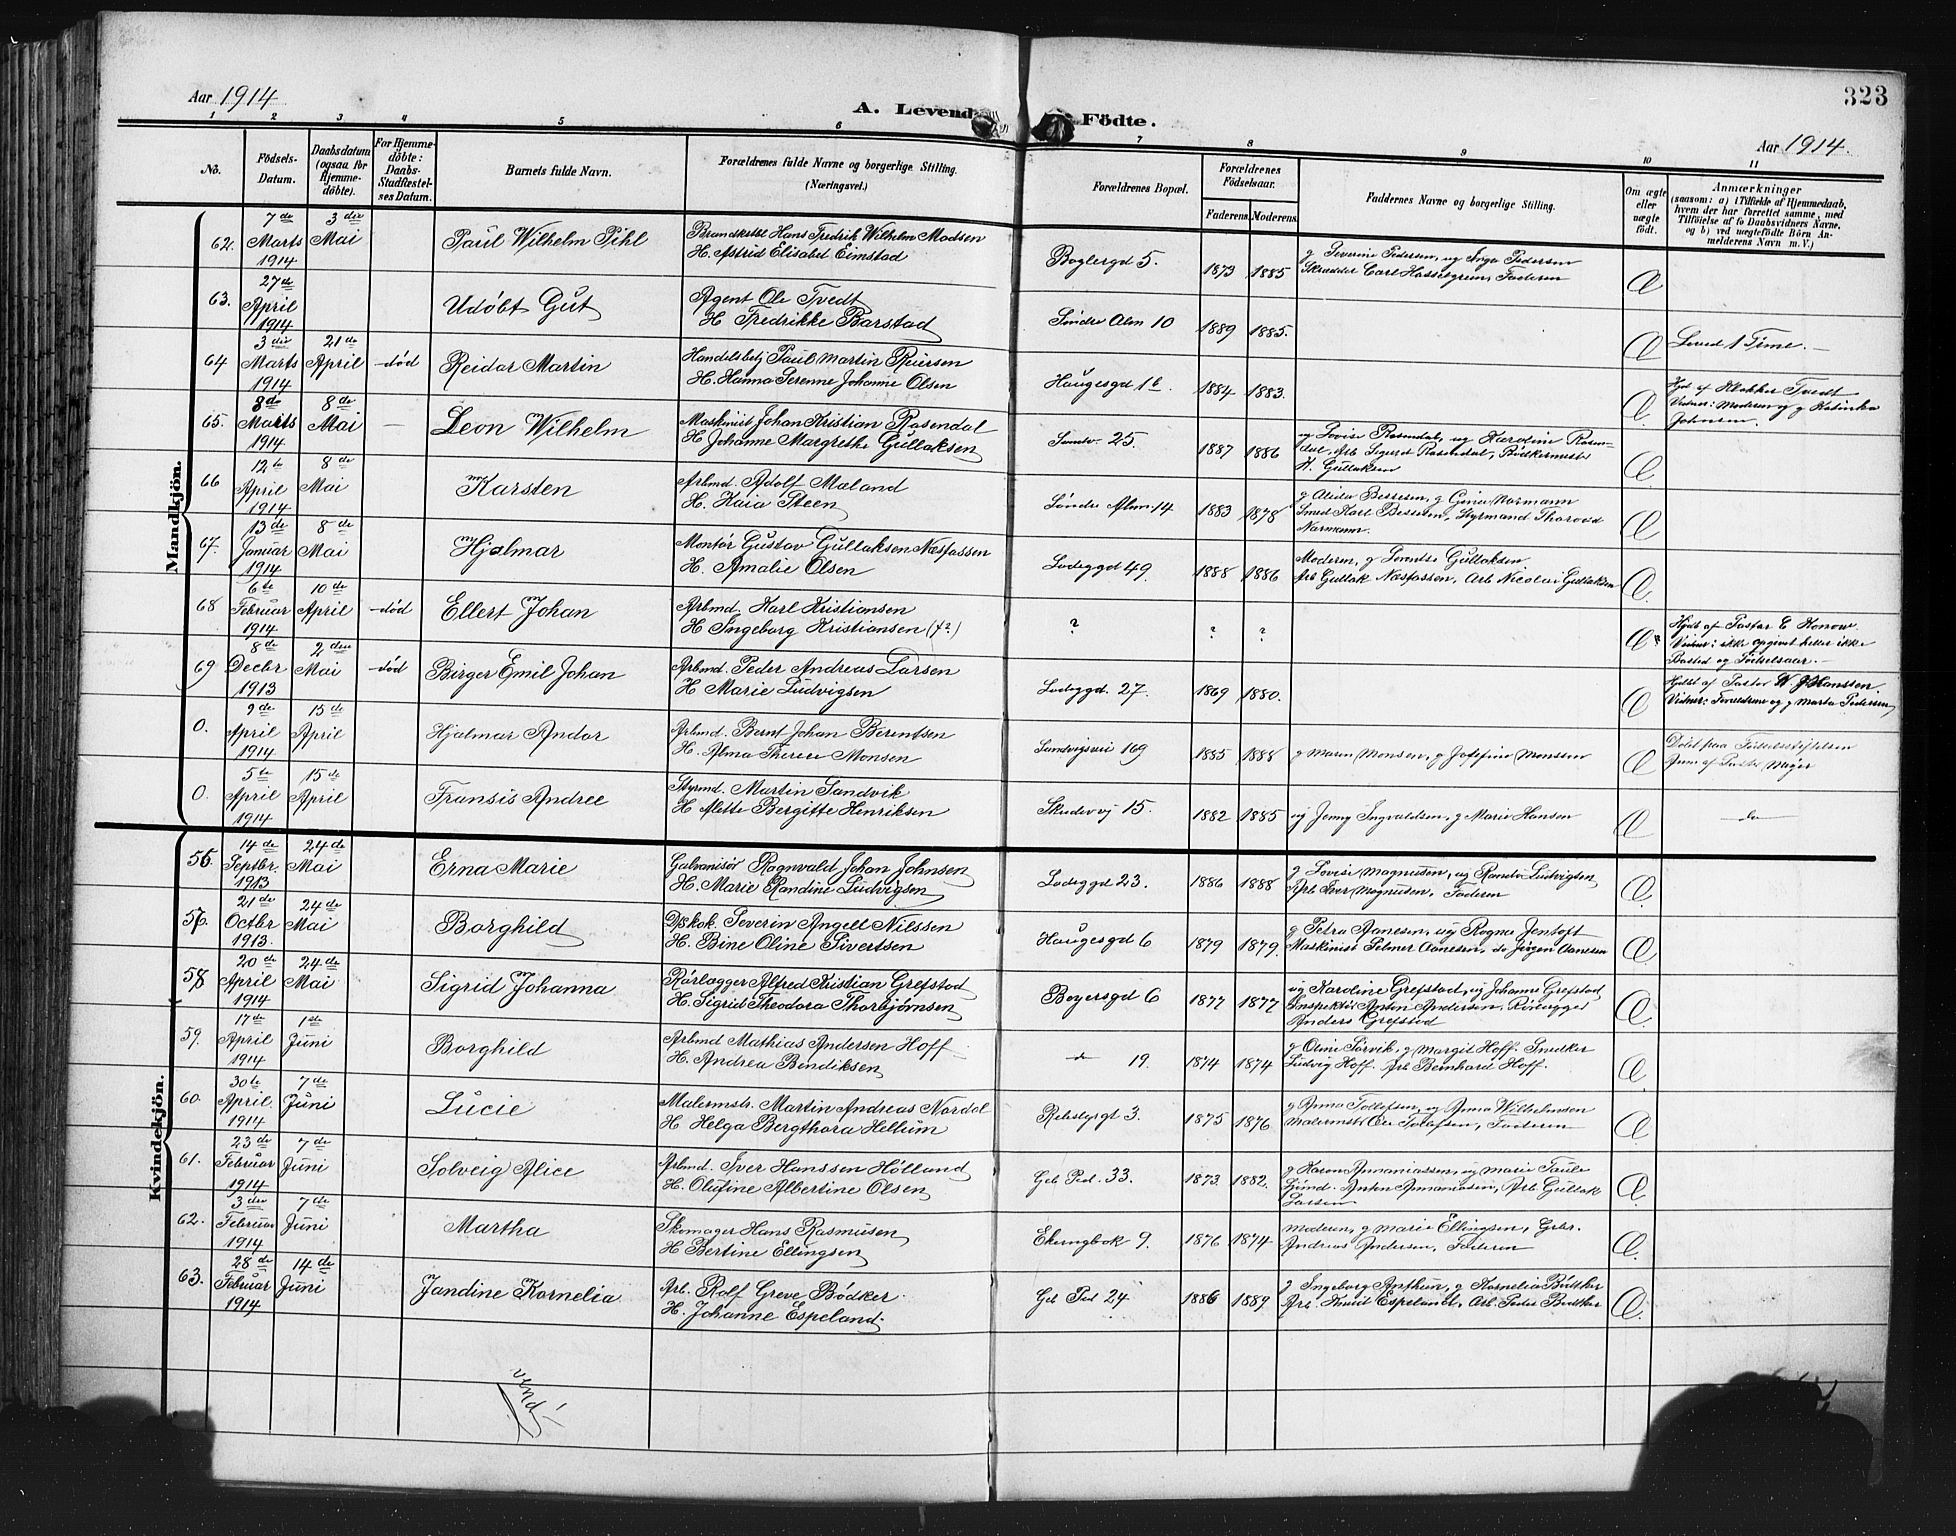 323
Aar 1914
A. Levende Födte.
Aar 1914.
1 2 3 4 5 6 7 8 9 10 11
No.
Födsels-Datum.
Daabsdatum (ogsaa for Hjemmedöbte).
For Hjemmedöbte: Daabs-Stadfæstelses Datum.
Barnets fulde Navn.
Forældrenes fulde Navne og borgerlige Stilling. (Næringsvei.)
Forældrenes Bopæl.
Forældrenes Födselsaar.
Faderens. Moderens.
Faddernes Navne og borgerlige Stilling.
Om ægte eller uægte födt.
Anmærkninger
(saasom: a) i Tilfælde af Hjemmedaab, hvem der har forrettet samme, med Tilföielse af to Daabsvidners Navne, og b) ved uægtefödte Börn Anmelderens Navn m. V.)
Mandkjön.
62. 7de Marts 1914 3die Mai Paul Wilhelm Pihl
Hans Fredrik Wilhelm Madsen
H. Astrid Elisabet Eimstad
5. 1873 1885
g Severine Pedersen, ug Inga Pedersen
Skrædder Carl Hasselgreen, Faderen
63. 27de April 1914 Udöbt Gut
Agent Ole Tvedt
H. Fredrikke Barstad
Söndre Alm 10 1889 1885.
Levede 1 Time.
64 3die Marts 1914 21de April död Reidar Martin
Handelsbetj Paul Martin Reiersen
H. Hanna Serenne Johanne Olsen
Haugesgd 1b. 1884 1883.
Hjd af Klokker Tvedt
Vidner: Moderen og g Katinka Johnsen.
65. 8de Marts 1914 8de Mai Leon Wilhelm
Maskinist Johan Kristian Rosendal
H. Johanne Margrethe Gullaksen
Sandv. 25. 1887 1886
ug Lovise Rosendal, ug Karoline Rosendal, Arb Sigurd Rosendal, Bödkermester H. Gullaksen
66 12te April 1914 8de Mai Karsten
Arbmd. Adolf Mæland
H. Kaia Steen
Söndre Alm 14 1883 1878
g Alida Bessesen, g Gina Normann
Smed Karl Bessesen, Styrmand Thorvald Normann.
67. 13de Januar 1914 8de Mai Hjalmar
Montör Gustav Gullaksen Næsfossen
H. Amalie Olsen
Lodeggd 49 1888 1886
Moderen, g Gullaksen
Arb Gullak Næsfossen, Arb Nicolai Gullaksen
68 6te Februar 1914 10de April död Ellert Johan
Arbmd. Karl Kristiansen
H. Ingeborg Kristiansen
? ? ?
Hjdt af Pastor E Konow
Vidner: ikke opgivet heller ikke
Bosted og Födselsaar.
69 8de Decbr 1913 2den Mai död Birger Emil Johan
Arbmd. Peder Andreas Larsen
H Marie Ludvigsen
Lodeggd. 27. 1869 1880.
Hjdbt af Pastor W J Hanssen.
Vidner: Forældrene og g Marta Pedersen
0. 9de April 1914 15de April Hjalmar Andor
Arbmd. Bernt Johan Berentsen
H. Alma Therese Monsen
Sandvigsvei 169 1885 1888
g Maren Monsen, g Josefine Monsen
Döbt paa Födselsstiftelsen af Pastor Meyer
0. 5te April 1914 15de April Fransis Andree
Styrmd. Martin Sandvik
H Alette Bergitte Henriksen
15. 1882 1885
ug Jenny Ingvaldsen, g Marie Hansen
do
Kvindekjön.
56. 14de Septbr. 1913 24de Mai Erna Marie
Galvanisör Ragnvald Johan Johnsen
H. Marie Randine Ludvigsen
Lodeggd 23. 1886 1888
g Lovise Magnussen, ug Ludvigsen
Arb Iver Magnussen, Faderen
57. 21de Octbr 1913. 24de Mai Borghild
D/skok. Severin Angell Nilssen
H. Bine Oline Sivertsen
Haugesgd 6 1879 1879.
g Petra Aanesen, ug Ragna Jentoft
Maskinist Aanesen, do Jörgen Aanesen
58 20de April 1914 24de Mai Sigrid Johanna
Rörlægger Alfred Kristian Grefstad
H. Sigrid Theodora Thorbjörnsen
Beyersgd 6 1877 1877
ug Karoline Grefstad, ug Johanne Grefstad
Inspektör Anton Andersen, Rörlægger
Anders Grefstad
59. 17de April 1914 1ste Juni Borghild
Arbmd Mathias Andersen Hoff
H. Andrea Bendiksen
do 19. 1874 1874
g Oline Sörvik, g Margit Hoff. Snedker
Ludvig Hoff. Arb Bernhard Hoff.
60. 30te April. 1914 7de Juni Lucie
Malermstr. Martin Andreas Nordal
H Helga Bergthora Hellum
3. 1875 1876
g Anna Tollefsen, ug Anna Wilhelmsen
Malermstr Ole Tollefsen, Faderen
61. 23de Februar 1914 7de Juni Solveig Alice
Arbmd. Iver Hanssen Hölland
H. Olufine Albertine Olsen
Geb Pd. 33. 1873 1882.
g Karen Annaniassen, ug Marie Faule
Anton Annaniasen, Arb Gullak Larsen
62. 3die Februar 1914 7de Juni Martha
Skomager Hans Rasmusen
H Bertine Ellingsen
9. 1876 1874
Moderen, g Marie Ellingsen, Grbr.
Andreas Andersen, Faderen
63. 28de Februar 1914 14de Juni Jandine Kornelia
Arb. Rolf Greve Bödker
H. Johanne Espeland
Geb Pd 24 1886 1889
g Ingeborg Anthun, g Kornelia Bödtker
Arb. Knud Espelandt, Arb. Peder Bödtker
vend!